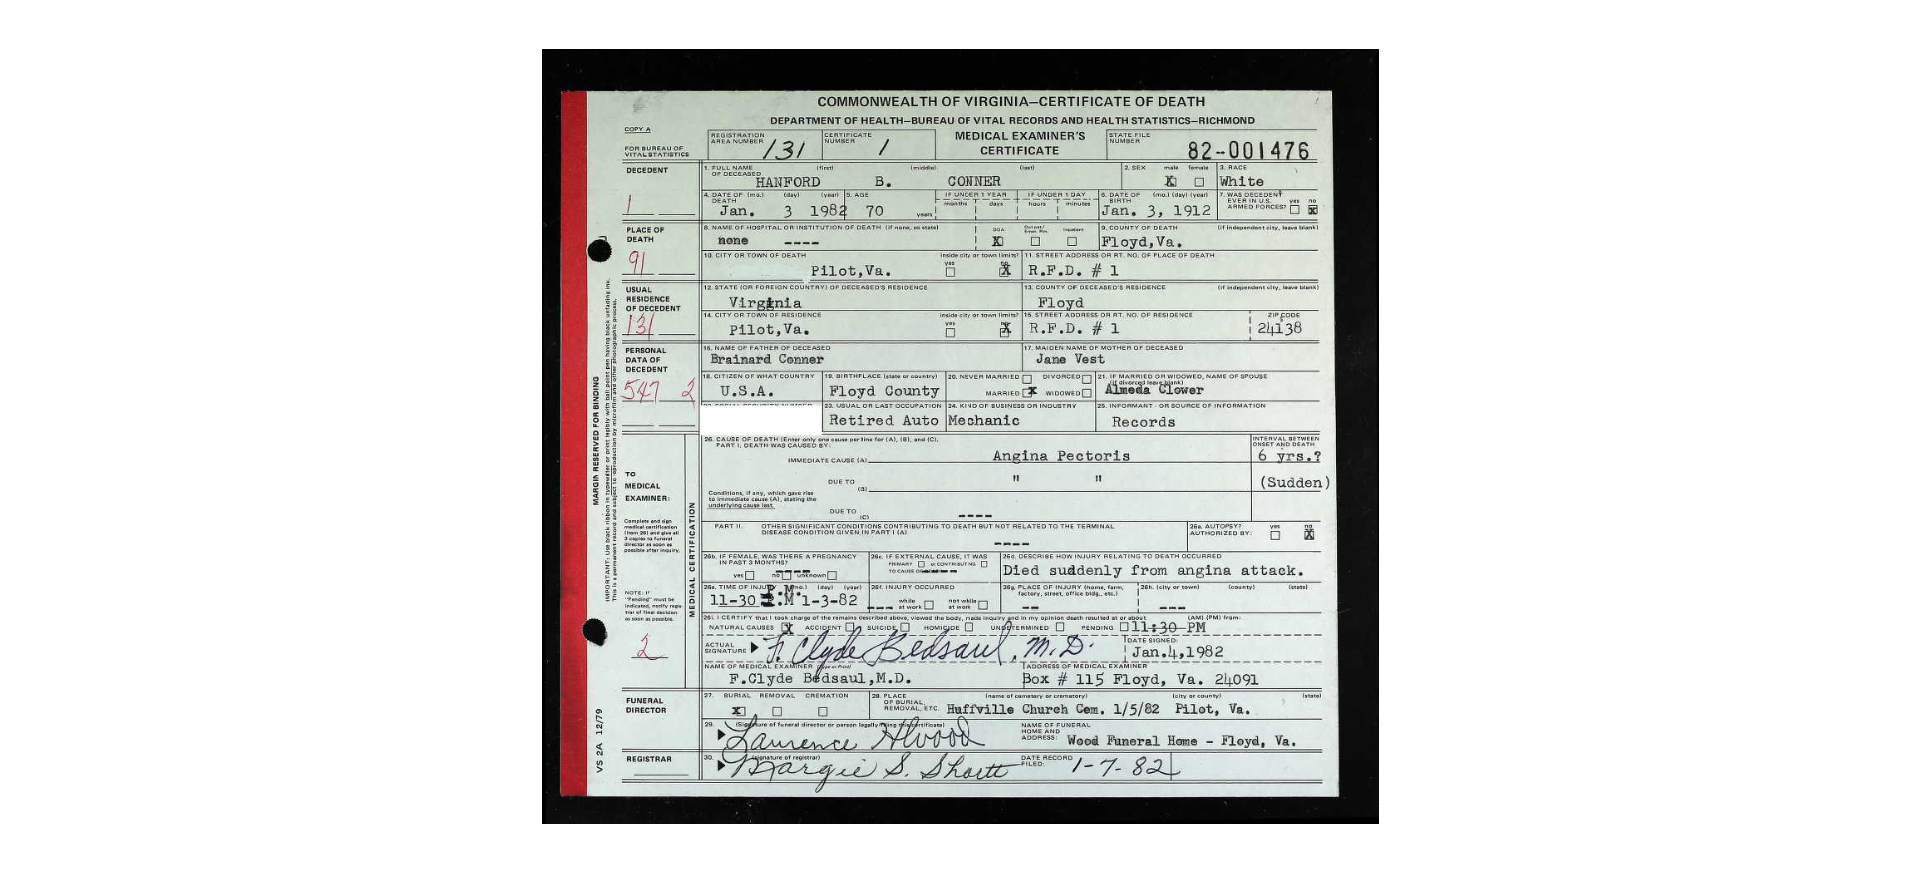 COMMONWEALTH OF VIRGINIA—CERTIFICATE OF DEATH
DEPARTMENT OF HEALTH—BUREAU OF VITAL RECORDS AND HEALTH STATISTICS—RICHMOND
COPY A
FOR BUREAU OF VITAL STATISTICS
REGISTRATION AREA NUMBER 131
CERTIFICATE NUMBER 1
MEDICAL EXAMINER'S CERTIFICATE
STATE FILE NUMBER 82-001476
DECEDENT
1
1. FULL NAME OF DECEASED (first) (middle) (last)
HANFORD B. CONNER
2. SEX male female X
3. RACE White
4. DATE OF DEATH (mo.) (day) (year) Jan. 3 1982
5. AGE 70 years
IF UNDER 1 YEAR months days
IF UNDER 1 DAY hours minutes
6. DATE OF BIRTH (mo.) (day) (year) Jan. 3, 1912
7. WAS DECEDENT EVER IN U.S. ARMED FORCES? yes no X
PLACE OF DEATH
91
8. NAME OF HOSPITAL OR INSTITUTION OF DEATH (if none, so state)
none ----
DOA X Inpatient
9. COUNTY OF DEATH (if independent city, leave blank)
Floyd,Va.
10. CITY OR TOWN OF DEATH
Pilot,Va.
inside city or town limits? yes no X
11. STREET ADDRESS OR RT. NO. OF PLACE OF DEATH
R.F.D. # 1
USUAL RESIDENCE OF DECEDENT
131
12. STATE (OR FOREIGN COUNTRY) OF DECEASED'S RESIDENCE
Virginia
13. COUNTY OF DECEASED'S RESIDENCE (if independent city, leave blank)
Floyd
14. CITY OR TOWN OF RESIDENCE
Pilot,Va.
inside city or town limits? yes X
15. STREET ADDRESS OR RT. NO. OF RESIDENCE
R.F.D. # 1
ZIP CODE 24138
PERSONAL DATA OF DECEDENT
547 2
16. NAME OF FATHER OF DECEASED
Brainard Conner
17. MAIDEN NAME OF MOTHER OF DECEASED
Jane Vest
18. CITIZEN OF WHAT COUNTRY
U.S.A.
19. BIRTHPLACE (state or country)
Floyd County
20. NEVER MARRIED DIVORCED
MARRIED X WIDOWED
21. IF MARRIED OR WIDOWED, NAME OF SPOUSE
(if divorced leave blank)
Almeda Clower
23. USUAL OR LAST OCCUPATION
Retired Auto
24. KIND OF BUSINESS OR INDUSTRY
Mechanic
25. INFORMANT - OR SOURCE OF INFORMATION
Records
TO MEDICAL EXAMINER:
Complete and sign medical certification (item 26) and give all 3 copies to funeral director as soon as possible after inquiry.
NOTE: If "Pending" must be indicated, notify registrar of final decision as soon as possible.
2
MEDICAL CERTIFICATION
26. CAUSE OF DEATH (Enter only one cause per line for (A), (B), and (C).
PART I. DEATH WAS CAUSED BY:
INTERVAL BETWEEN ONSET AND DEATH
IMMEDIATE CAUSE (A) Angina Pectoris 6 yrs.?
DUE TO (B) " " (Sudden)
Conditions, if any, which gave rise to immediate cause (A), stating the underlying cause last.
DUE TO (C) ----
PART II. OTHER SIGNIFICANT CONDITIONS CONTRIBUTING TO DEATH BUT NOT RELATED TO THE TERMINAL DISEASE CONDITION GIVEN IN PART I (A)
----
26a. AUTOPSY? AUTHORIZED BY: yes no X
26b. IF FEMALE, WAS THERE A PREGNANCY IN PAST 3 MONTHS?
yes no unknown
26c. IF EXTERNAL CAUSE, IT WAS
PRIMARY or CONTRIBUTING
TO CAUSE OF
26d. DESCRIBE HOW INJURY RELATING TO DEATH OCCURRED
Died suddenly from angina attack.
26e. TIME OF INJURY (mo.) (day) (year)
11-30 P.M 1-3-82
26f. INJURY OCCURRED
--- while at work not while at work
26g. PLACE OF INJURY (home, farm, factory, street, office bldg., etc.)
--
26h. (city or town) (county) (state)
---
26i. I CERTIFY that I took charge of the remains described above, viewed the body, made inquiry and in my opinion death resulted at or about (AM) (PM) from:
NATURAL CAUSES X ACCIDENT SUICIDE HOMICIDE UNDETERMINED PENDING 11:30 PM
ACTUAL SIGNATURE F. Clyde Bedsaul, M.D.
DATE SIGNED: Jan.4,1982
NAME OF MEDICAL EXAMINER (Type or Print)
F.Clyde Bedsaul,M.D.
ADDRESS OF MEDICAL EXAMINER
Box # 115 Floyd, Va. 24091
FUNERAL DIRECTOR
27. BURIAL REMOVAL CREMATION
X
28. PLACE OF BURIAL, REMOVAL, ETC. (name of cemetery or crematory) (city or county) (state)
Huffville Church Cem. 1/5/82 Pilot, Va.
29. (Signature of funeral director or person legally filing this certificate)
Laurence H Wood
NAME OF FUNERAL HOME AND ADDRESS: Wood Funeral Home - Floyd, Va.
REGISTRAR
30. (signature of registrar)
Margie S. Shortt
DATE RECORD FILED: 1-7-82
MARGIN RESERVED FOR BINDING
VS 2A 12/79